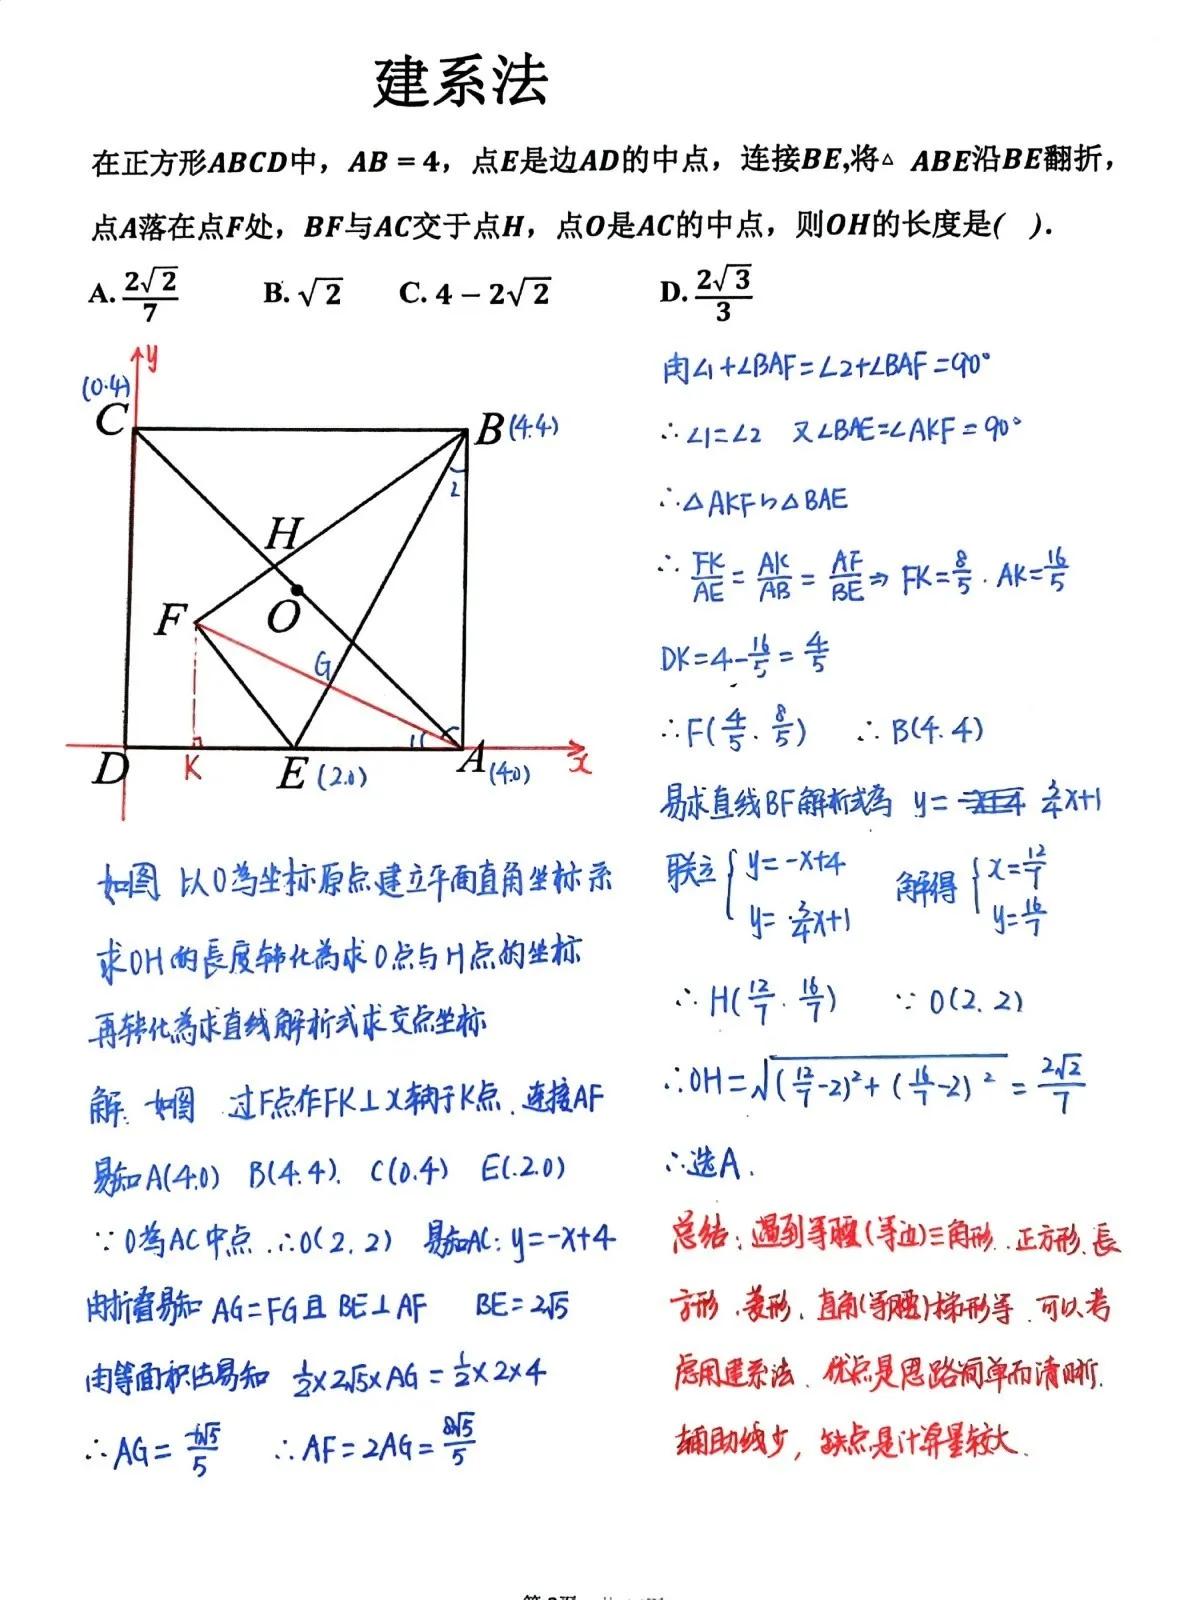 建系法
在正方形ABCD中，AB = 4，点E是边AD的中点，连接BE,将△ ABE沿BE翻折，
点A落在点F处，BF与AC交于点H，点O是AC的中点，则OH的长度是(   ).
A. 2√2/7   B. √2   C. 4 − 2√2   D. 2√3/3
y
(0.4)
C
B (4.4)
2
H
O
F
G
1
D
K
E (2.0)
A (4.0)
x
如图 以D为坐标原点建立平面直角坐标系
求OH的長度转化為求O点与H点的坐标
再转化為求直线解析式求交点坐标
解: 如图 过F点作FK⊥X轴于K点、连接AF
易知A(4.0) B(4.4). C(0.4) E(.2.0)
∵O為AC中点.∴O(2.2) 易知AC: y=-x+4
由折叠易知 AG=FG且BE⊥AF BE=2√5
由等面积法易知 1/2×2√5×AG=1/2×2×4
∴AG=4√5/5 ∴AF=2AG=8√5/5
由∠1+∠BAF=∠2+∠BAF=90°
∴∠1=∠2 又∠BAE=∠AKF=90°
∴△AKF∽△BAE
∴ FK/AE=AK/AB=AF/BE⇒FK=8/5.AK=16/5
DK=4-16/5=4/5
∴F(4/5.8/5) ∴B(4.4)
易求直线BF解析式為 y= 3/4x+1
联立{y=-x+4 y=3/4x+1 解得{x=12/7 y=16/7
∴H(12/7.16/7) ∵O(2.2)
∴OH=√((12/7-2)²+(16/7-2)²)=2√2/7
∴选A.
总结: 遇到等腰(等边)三角形、正方形、長
方形、菱形、直角(等腰)梯形等、可以考
虑用建系法、优点是思路简单而清晰.
辅助线少，缺点是计算量较大.